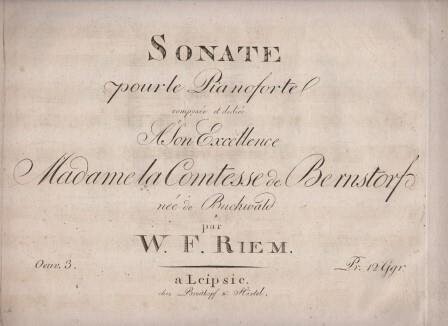 SONATE
pour le Pianoforte
composée et dediée
A Son Excellence
Madame la Comtesse de Bernstorf
née de Buchwald
par
W. F. RIEM.
Oeuv. 3.
Pr. 12 Ggr.
a Leipsic.
chez Breitkopf & Härtel.